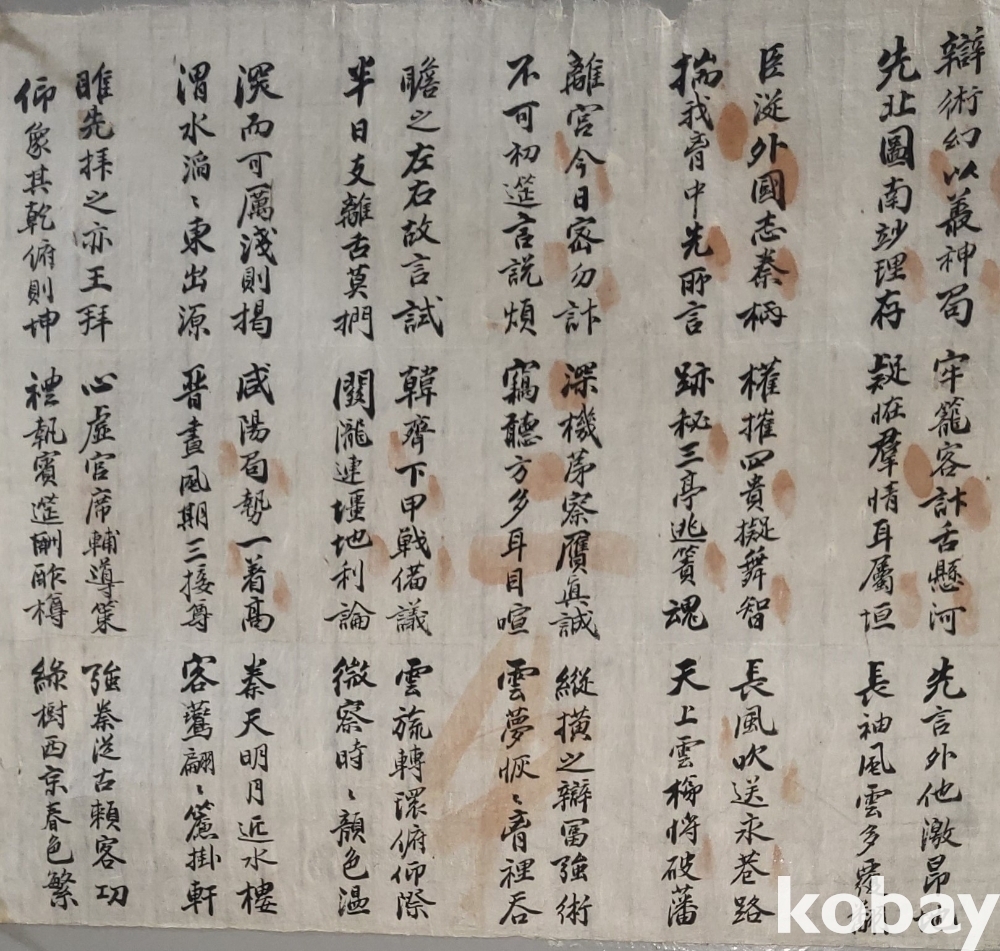 辯術約以叢神局 牢籠客計舌懸河 先言外他激昂
先北圖南玅理存 疑在羣情耳屬垣 長袖風雲多覆
臣從外國志秦柄 權摧四貴擬舞智 長風吹送永巷路
揣我胷中先所言 跡秘三亭逃簀魂 天上雲梯將破藩
離宮今日密勿計 深機茅察贋眞誠 縱橫之辯富強術
不可初筵言說煩 竊聽方多耳目喧 雲夢恢〻胷裡呑
瞻之左右故言試 韓齊下甲戰備議 雲旒轉環俯仰際
半日支離舌莫捫 關隴連壃地利論 微察時〻顔色溫
深而可厲淺則揭 咸陽局勢一着高 秦天明月近水樓
渭水滔〻東出源 晉晝風期三接尊 客鷺翩〻簾掛軒
睢先拜之亦王拜 心虛官席輔導策 強秦從古賴客功
仰象其乾俯則坤 禮執賓筵酬酢樽 綠樹西京春色繁
kobay